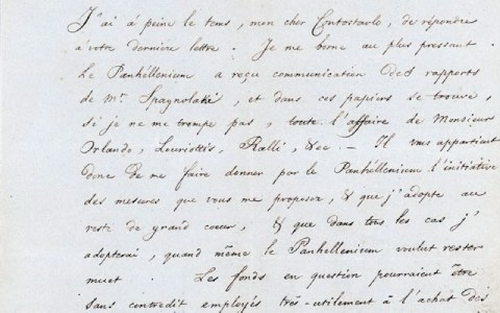 J'ai à peine le tems, mon cher Contostavlo, de répondre
à votre dernière lettre. Je me borne au plus pressant.
Le Panhéllenium a reçu communication des rapports
de Mr. Spagnolaki, et dans ces papiers se trouve,
si je ne me trompe pas, toute l'affaire de Monsieur
Orlando, Louriottis, Ralli, &c. — Il vous appartient
donc de me faire donner par le Panhéllenium l'initiative
des mesures que vous me proposez, & que j'adopte au
reste de grand cœur, & que dans tous les cas j'
adopterai, quand même le Panhellenium voulut rester
muet. Les fonds en question pourraient être
sans contredit employés très-utilement à l'achat des